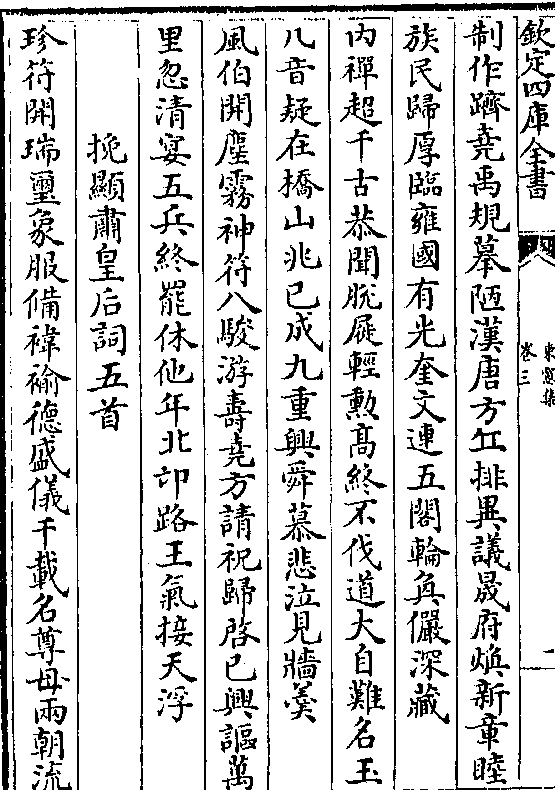 欽定四庫全書
東窗集
卷三
一
制作躋堯禹規摹陋漢唐方丘排異議晟府煥新章睦
族民歸厚臨雍國有光奎文連五閣輪奐儼深藏
内禪超千古恭聞脫屣輕勲髙終不伐道大自難名玉
几音疑在橋山兆已成九重興舜慕悲泣見牆羮
風伯開塵霧神符八駿游壽堯方請祝歸啓已興謳萬
里忽清宴五兵終罷休他年北邙路王氣接天浮
挽顯肅皇后詞五首
珍符開瑞璽象服備褘褕德盛儀千載名尊母兩朝流